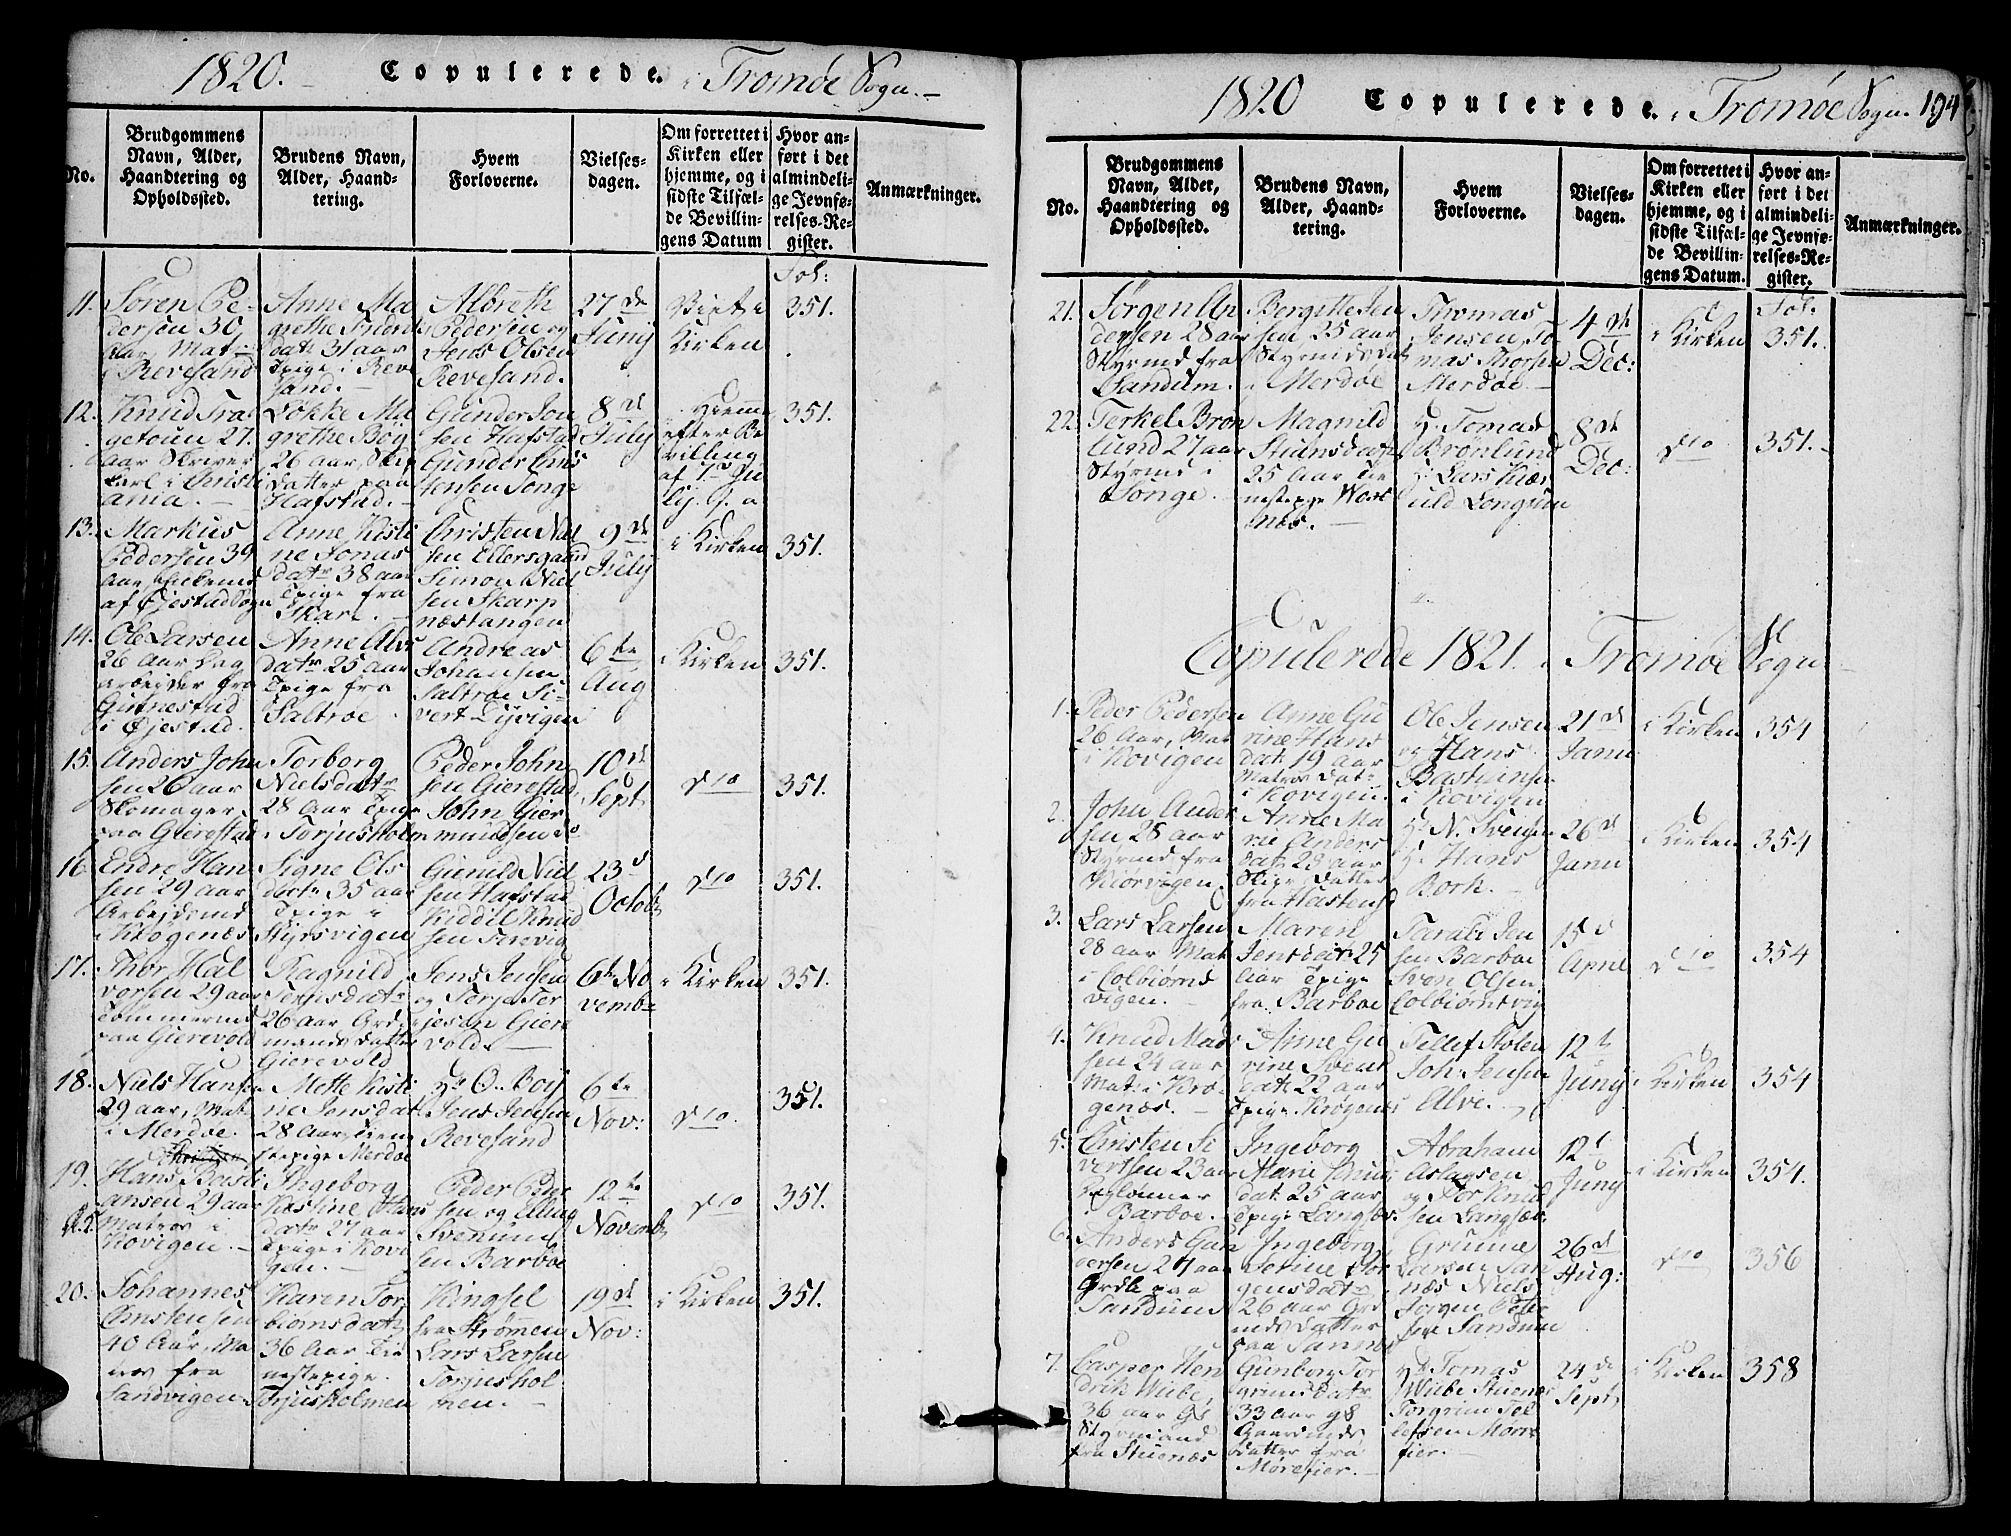 1820. Copulerede. i Tromøe Sogn.
No.
Brudgommens Navn, Alder, Haandtering og Opholdssted.
Brudens Navn, Alder, Haandtering.
Hvem Forloverne.
Vielsesdagen.
Om forrettet i Kirken eller hjemme, og i sidste Tilfælde Bevillingens Datum
Hvor anført i det almindelige Jevnførelses-Register.
Anmærkninger.
11. Søren Pedersen 30 Aar, Mat: i Revesand
Anne Margrethe datr 31 aar Pige i Revesand.
Albreth Pedersen og Jens Olsen Revesand.
27de Junij
Viet i Kirken
Fol: 351.
12. Knud 27 aar Skriverkarl i Christiania.
Løkke Margrethe Boy 26 aar, datter paa Hafstad.
Gunder Jensen Hafstad Gunder Christensen Songe
8de Julij
Hiemme efter Bevilling af 1ste Julij s. a
351.
13. Markus Pedersen 39 aar Enkemd af Øjestad Sogn
Anne Kistine Jonasdatr 38 aar Pige fra Skare.
Christen Nielsen Ellersgaard Simon Nielsen Skarpnæstangen
9de Julij
i Kirken
351.
14. Ole Larsen 26 Aar Dagarbejder fra i Øjestad.
Anne Alvsdatr 25 aar Pige fra Saltrøe
Andreas Johansen Saltrøe Sivert Dyvigen
6te Aug
i Kirken
351.
15. Anders Johnsen 26 aar Skomager paa Gierestad
Torborg Nielsdatr 28 Aar Pige i Torjusholm
Peder Johnsen Gierestad John Giermundsen do
10de Sept
do
351.
16. Endre Hansen 29 aar Arbejdsmd i Kløgenæs
Signe Olsdatr 35 aar Pige i Styrsvigen
Gunuld Nielsen Hafstad Kiddil Knudsen Færevig
23d Octob
do
351.
17. Thor Halvorsen 29 aar Tømmermd paa Gierevold
Ragnild Terjesdatr 26 aar Grdmands datter Gierevold
Jens Jensen og Terje Terjesen Gierevold.
6te November
i Kirken
351.
18. Niels Hansen 29 aar, Mat. i Merdøe.
Mette Kistine Jensdatr 28 Aar, Tienestepige Merdøe
Hr O. Boij Jens Jensen Revesand
6te Nov:
do
351.
19. Hans Bastiansen 29 aar Matros i Kovigen.
Ingeborg Kistine Hansdatr 27 aar Pige i Kovigen.
Peder Pedersen og Svenumsen Barboe
12te Novemb
do
351.
20. Johannes Christensen 40 Aar, Matros fra Sandvigen
Karen Torbiørnsdatr 36 Aar Tienestepige. Torjusholmen
fra Strømmen Lars Larsen Torjusholmen.
19de Nov:
i Kirken
351.
1820 Copulerede. i Tromøe Sogn. 194
No.
Brudgommens Navn, Alder, Haandtering og Opholdssted.
Brudens Navn, Alder, Haandtering.
Hvem Forloverne.
Vielsesdagen.
Om forrettet i Kirken eller hjemme, og i sidste Tilfælde Bevillingens Datum.
Hvor anført i det almindelige Jevnførelses-Register.
Anmærkninger.
21. Jørgen Andersen 28 aar Styrmd fra Sandum.
Bergitte Jensen 25 aar Styrmds dat i Merdøe
Thomas Jensen, Tomas Thorsen Merdøe.
4de Dec:
i Kirken
Fol. 351.
22. Terkel Brønlund 27 aar Styrmd i Songe.
Magnild Stiansdatr 25 Aar Tienestepige
Hr. Tomas Brønlund Hr. Lars Kiæruld Longsum
8de Dec:
do
351.
Copulerede 1821. i Tromøe Sogn
1. Peder Pedersen 26 Aar, Mat i Kovigen
Anne Gurine Hansdatr 19 aar Matros Datr i Kovigen.
Ole Jensen og Hans Bastiansen i Kovigen
21de Janu
i Kirken
354
2. John Andersen 28 aar Styrmd fra Kiørvigen.
Anne Marie Andersdatr 28 aar datter fra Hastensd
Hr N. Svensen Hr. Hans Bork.
26de Janu
i Kirken
354
3. Lars Larsen 28 aar Mat i Colbiørnsvigen.
Maren Jensdatr 25 Aar Pige fra Barboe
Tarald Jensen Barboe Sven Olsen Colbiørnsvig
15d April
do
354
4. Knud Madsen 24 aar Mat. i Krøgenæs.
Anne Gurine Svendsdatr 22 aar Pige Krøgenæs
Tellef Joh: Jensen Alve.
12te Junij
i Kirken
354
5. Christen Sivertsen 23 aar i Barboe.
Ingeborg Marie Knudsdat. 25 aar Pige Langsæe
Abraham Aslagsen og Tor Knudsen Langsæe
12t Junij
i Kirken
354.
6. Anders Gundersen 24 aar Grdbr paa Sandum
Ingeborg Serine Jørgensdatr 26 aar Grdmds datter paa Sannes
Grunne Larsen Sannæs Niels Jørgen Pedersen Sandum
26de Aug:
do
356
7. Casper Hendrik Wiibe, 36 aar Gl Styrmand fra Stuenæs
Gunborg Torgrimsdatr 33 aar gl Gaardmds datter fra Mørefier.
Hr Tomas Wiibe Stuenæs Torgrim Tellefsen Mørefier.
24de Sept
i Kirken
358